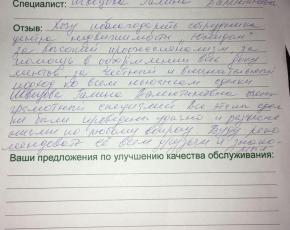 Специалист: Швидова Галина Валентиновна
Отзыв: Хочу поблагодарить сотрудника
центра "недвижимость
за высокий профессионализм, за
помощь в оформлении всех доку
ментов за честный и внимательный
подход ко всем нюансам сделки
Галина Валентиновна очень
грамотный специалист. Все этапы сделки
были проведены удачно и
по любому вопросу. Буду реко
мендовать ее всем друзьям и знако
мым
Ваши предложения по улучшению качества обслуживания: